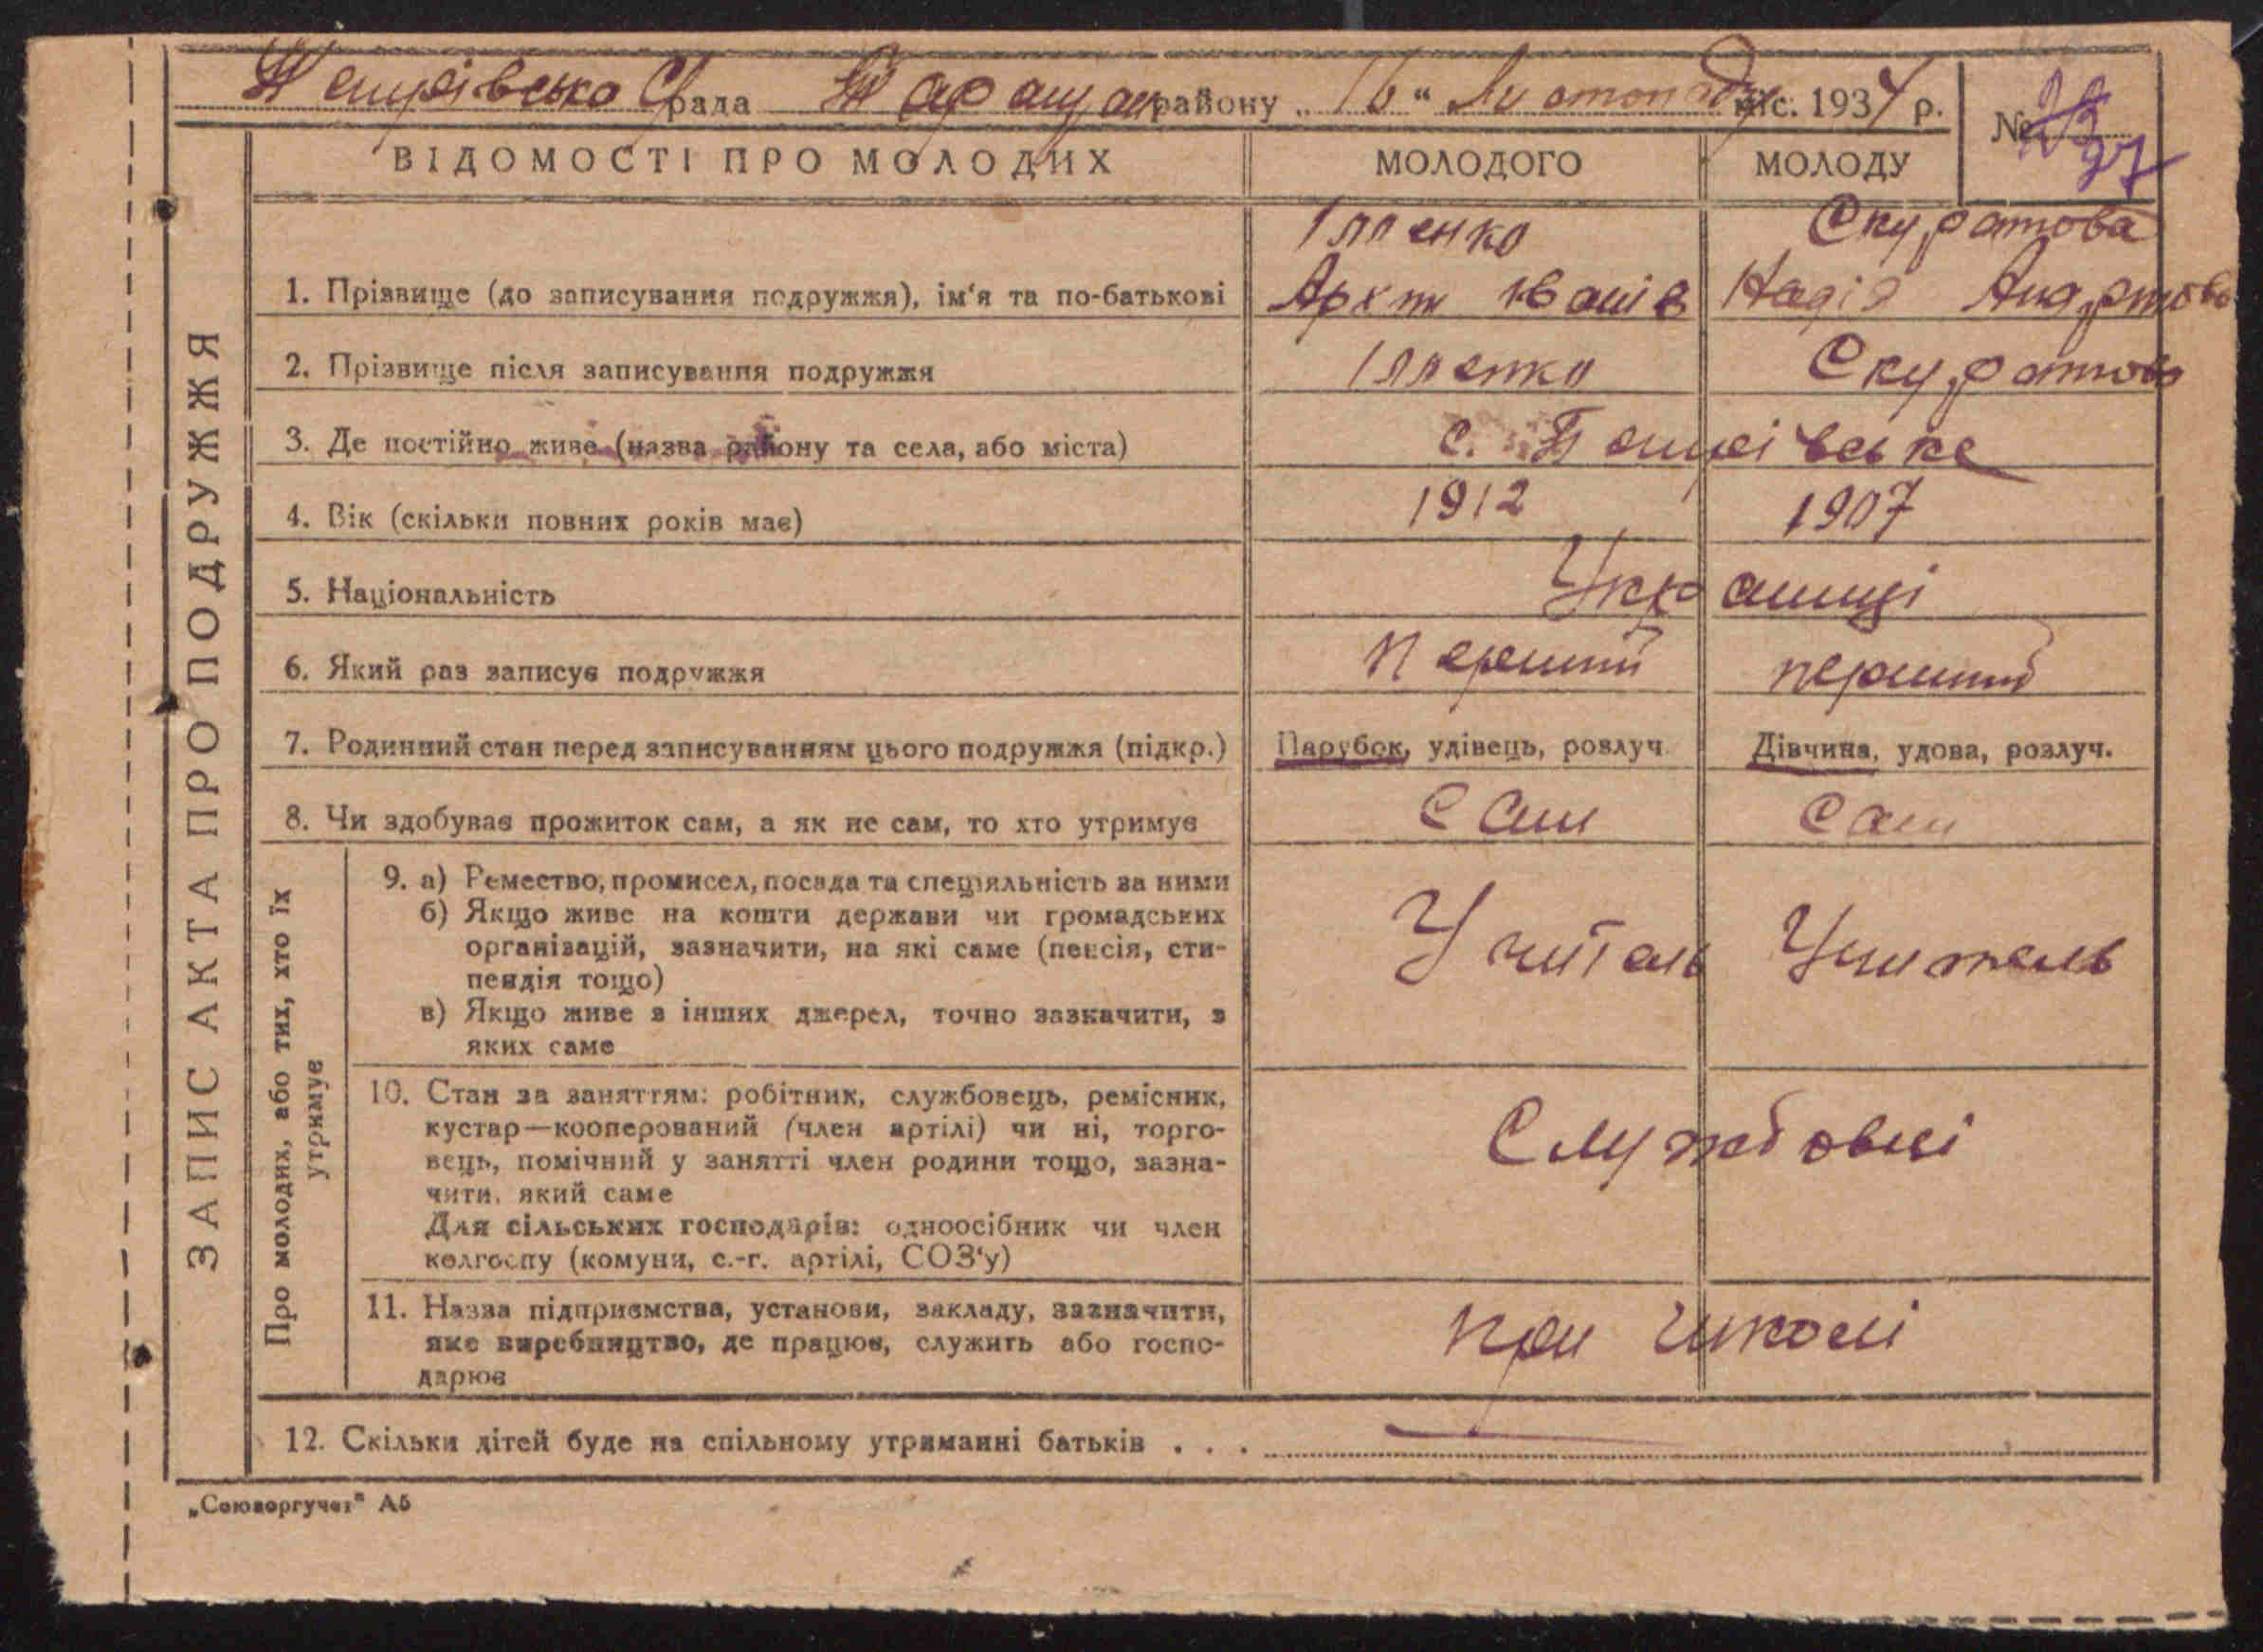 рада району „ 16 “ Листопаду міс. 1934 р.
№ 97
ЗАПИС АКТА ПРО ПОДРУЖЖЯ
ВІДОМОСТІ ПРО МОЛОДИХ МОЛОДОГО МОЛОДУ
Скуратова
1. Прізвище (до записування подружжя), ім‘я та по-батькові Надія
2. Прізвище після записування подружжя Скуратова
3. Де постійно живе (назва району та села, або міста) с.
4. Вік (скільки повних років має) 1912 1907
5. Національність Українці
6. Який раз записує подружжя Перший перший
7. Родинний стан перед записуванням цього подружжя (підкр.) Парубок, удівець, розлуч. Дівчина, удова, розлуч.
8. Чи здобуває прожиток сам, а як не сам, то хто утримує Сам Сам
Про молодих, або тих, хто їх
утримує
9. а) Ремество, промисел, посада та спеціяльність за ними
б) Якщо живе на кошти держави чи громадських
організацій, зазначити, на які саме (пенсія, сти-
пендія тощо)
в) Якщо живе з інших джерел, точно зазначити, з
яких саме
Учитель Учитель
10. Стан за заняттям: робітник, службовець, ремісник,
кустар—кооперований (член артілі) чи ні, торго-
вець, помічний у занятті член родини тощо, зазна-
чити, який саме
Для сільських господарів: одноосібник чи член
колгоспу (комуни, с.-г. артілі, СОЗ‘у)
Службовці
11. Назва підприємства, установи, закладу, зазначити,
яке виребництво, де працює, служить або госпо-
дарює
при школі
12. Скільки дітей буде на спільному утриманні батьків . . .
„Союзоргучет" А5